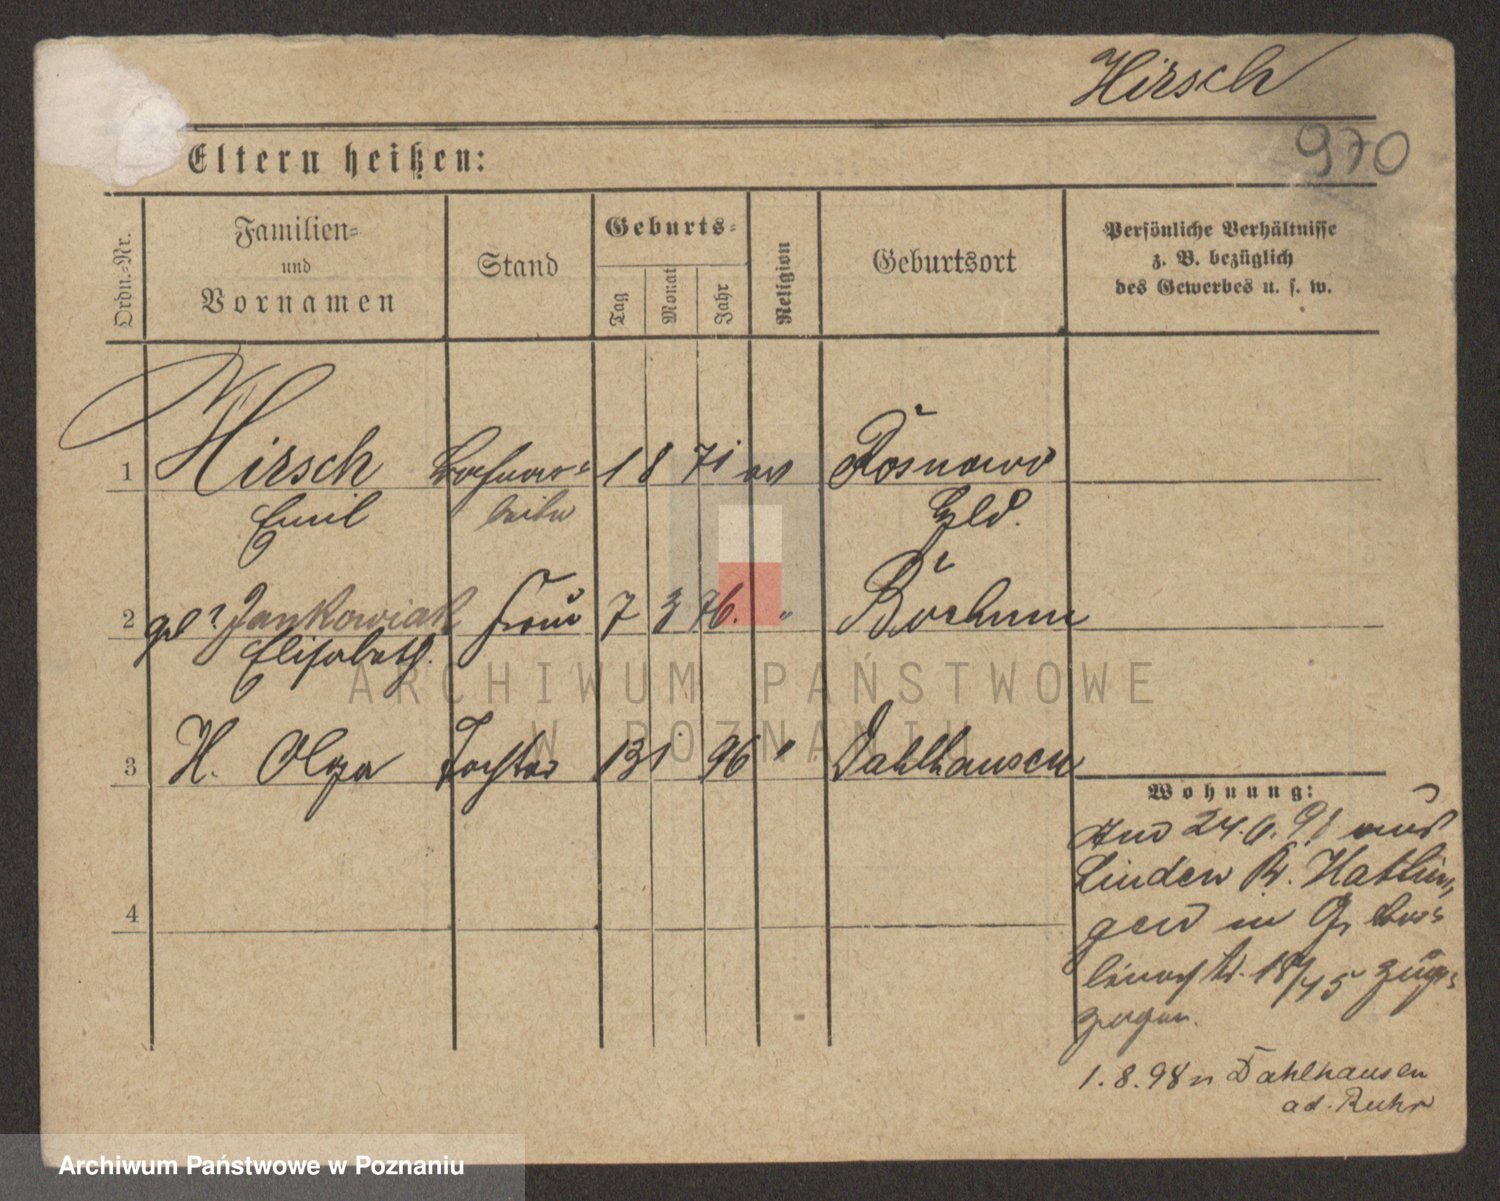 Hirsch
970
Eltern heißen:
Ordn.-Nr.
Familien-
und
Vornamen
Stand
Geburts-
Tag
Monat
Jahr
Religion
Geburtsort
Persönliche Verhältnisse
z. B. bezüglich
des Gewerbes u. s. w.
1 Hirsch 1 8 71 ev Rosnowo
Emil Hld.
2 Jankowiak Frau 7 3 76. " Bochum
Elisabeth.
3 H. Olga Tochter 13 1 96 " Dahlhausen
4
Wohnung:
24. 6. 98 aus
Linden Kr. Hattin-
gen in
18/45 zuge-
zogen.
1. 8. 98 n Dahlhausen
a d. Ruhr
ARCHIWUM PAŃSTWOWE
W POZNANIU
Archiwum Państwowe w Poznaniu